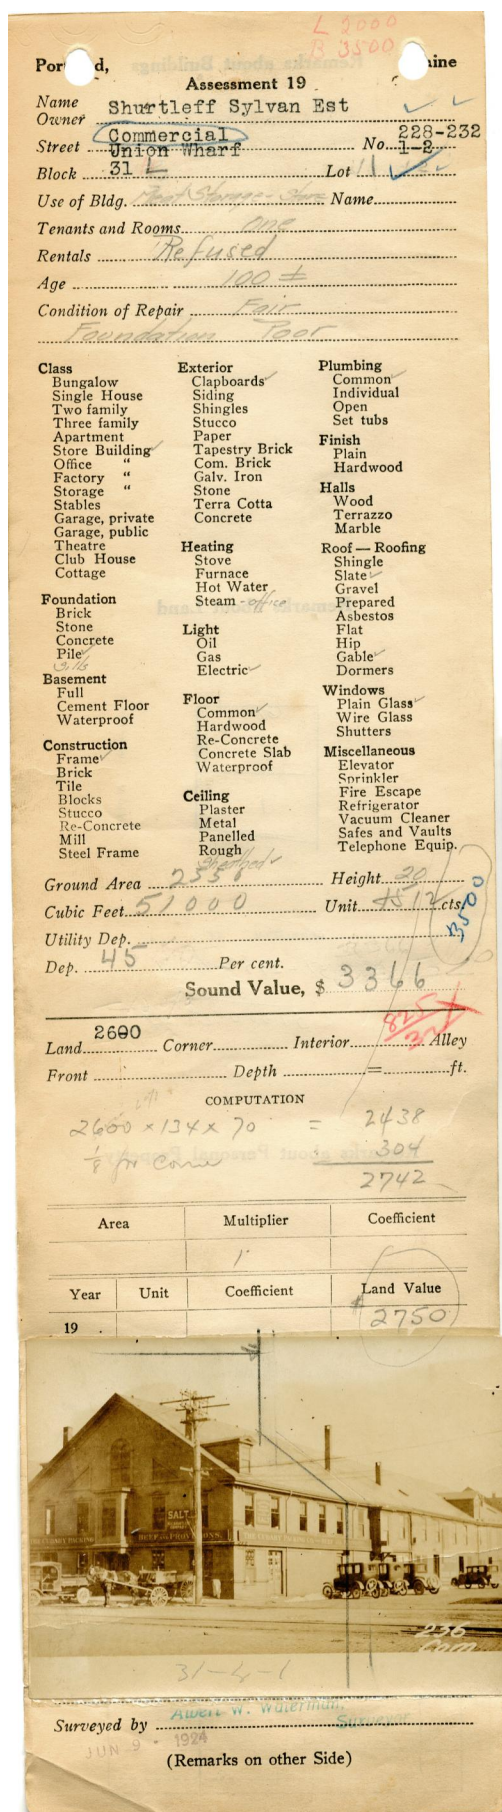 L 2000
B 3500
Port d, aine
Assessment 19
Name
Owner Shurtleff Sylvan Est
Street Commercial No. 228-232
Union Wharf 1-2
Block 31 L Lot 1
Use of Bldg. Meat Storage - Store Name
Tenants and Rooms one
Rentals Refused
Age 100 ±
Condition of Repair Fair
Foundation Poor
Class
Bungalow
Single House
Two family
Three family
Apartment
Store Building ✓
Office "
Factory "
Storage "
Stables
Garage, private
Garage, public
Theatre
Club House
Cottage
Foundation
Brick
Stone
Concrete
Pile ✓
Sills
Basement
Full
Cement Floor
Waterproof
Construction
Frame ✓
Brick
Tile
Blocks
Stucco
Re-Concrete
Mill
Steel Frame
Exterior
Clapboards ✓
Siding
Shingles
Stucco
Paper
Tapestry Brick
Com. Brick
Galv. Iron
Stone
Terra Cotta
Concrete
Heating
Stove
Furnace
Hot Water
Steam - office
Light
Oil
Gas
Electric ✓
Floor
Common ✓
Hardwood
Re-Concrete
Concrete Slab
Waterproof
Ceiling
Plaster
Metal
Panelled
Rough
Sheathed ✓
Plumbing
Common ✓
Individual
Open
Set tubs
Finish
Plain
Hardwood
Halls
Wood
Terrazzo
Marble
Roof — Roofing
Shingle
Slate ✓
Gravel
Prepared
Asbestos
Flat
Hip
Gable ✓
Dormers
Windows
Plain Glass ✓
Wire Glass
Shutters
Miscellaneous
Elevator
Sprinkler
Fire Escape
Refrigerator
Vacuum Cleaner
Safes and Vaults
Telephone Equip.
Ground Area 2556 Height 20
Cubic Feet 51000 Unit 12 cts.
3500
Utility Dep.
Dep. 45 Per cent.
Sound Value, $ 3366
Land 2600 Corner Interior Alley
Front Depth = ft.
COMPUTATION
2600 x 134 x 70 = 2438
1/8 for Corner 304
2742
Area Multiplier Coefficient
Year Unit Coefficient Land Value
19 . $ 2750
SALT
BEEF & PROVISIONS.
236
Com
31-L-1
Surveyed by Albert W. Waterman,
Surveyor
JUN 9 - 1924
(Remarks on other Side)